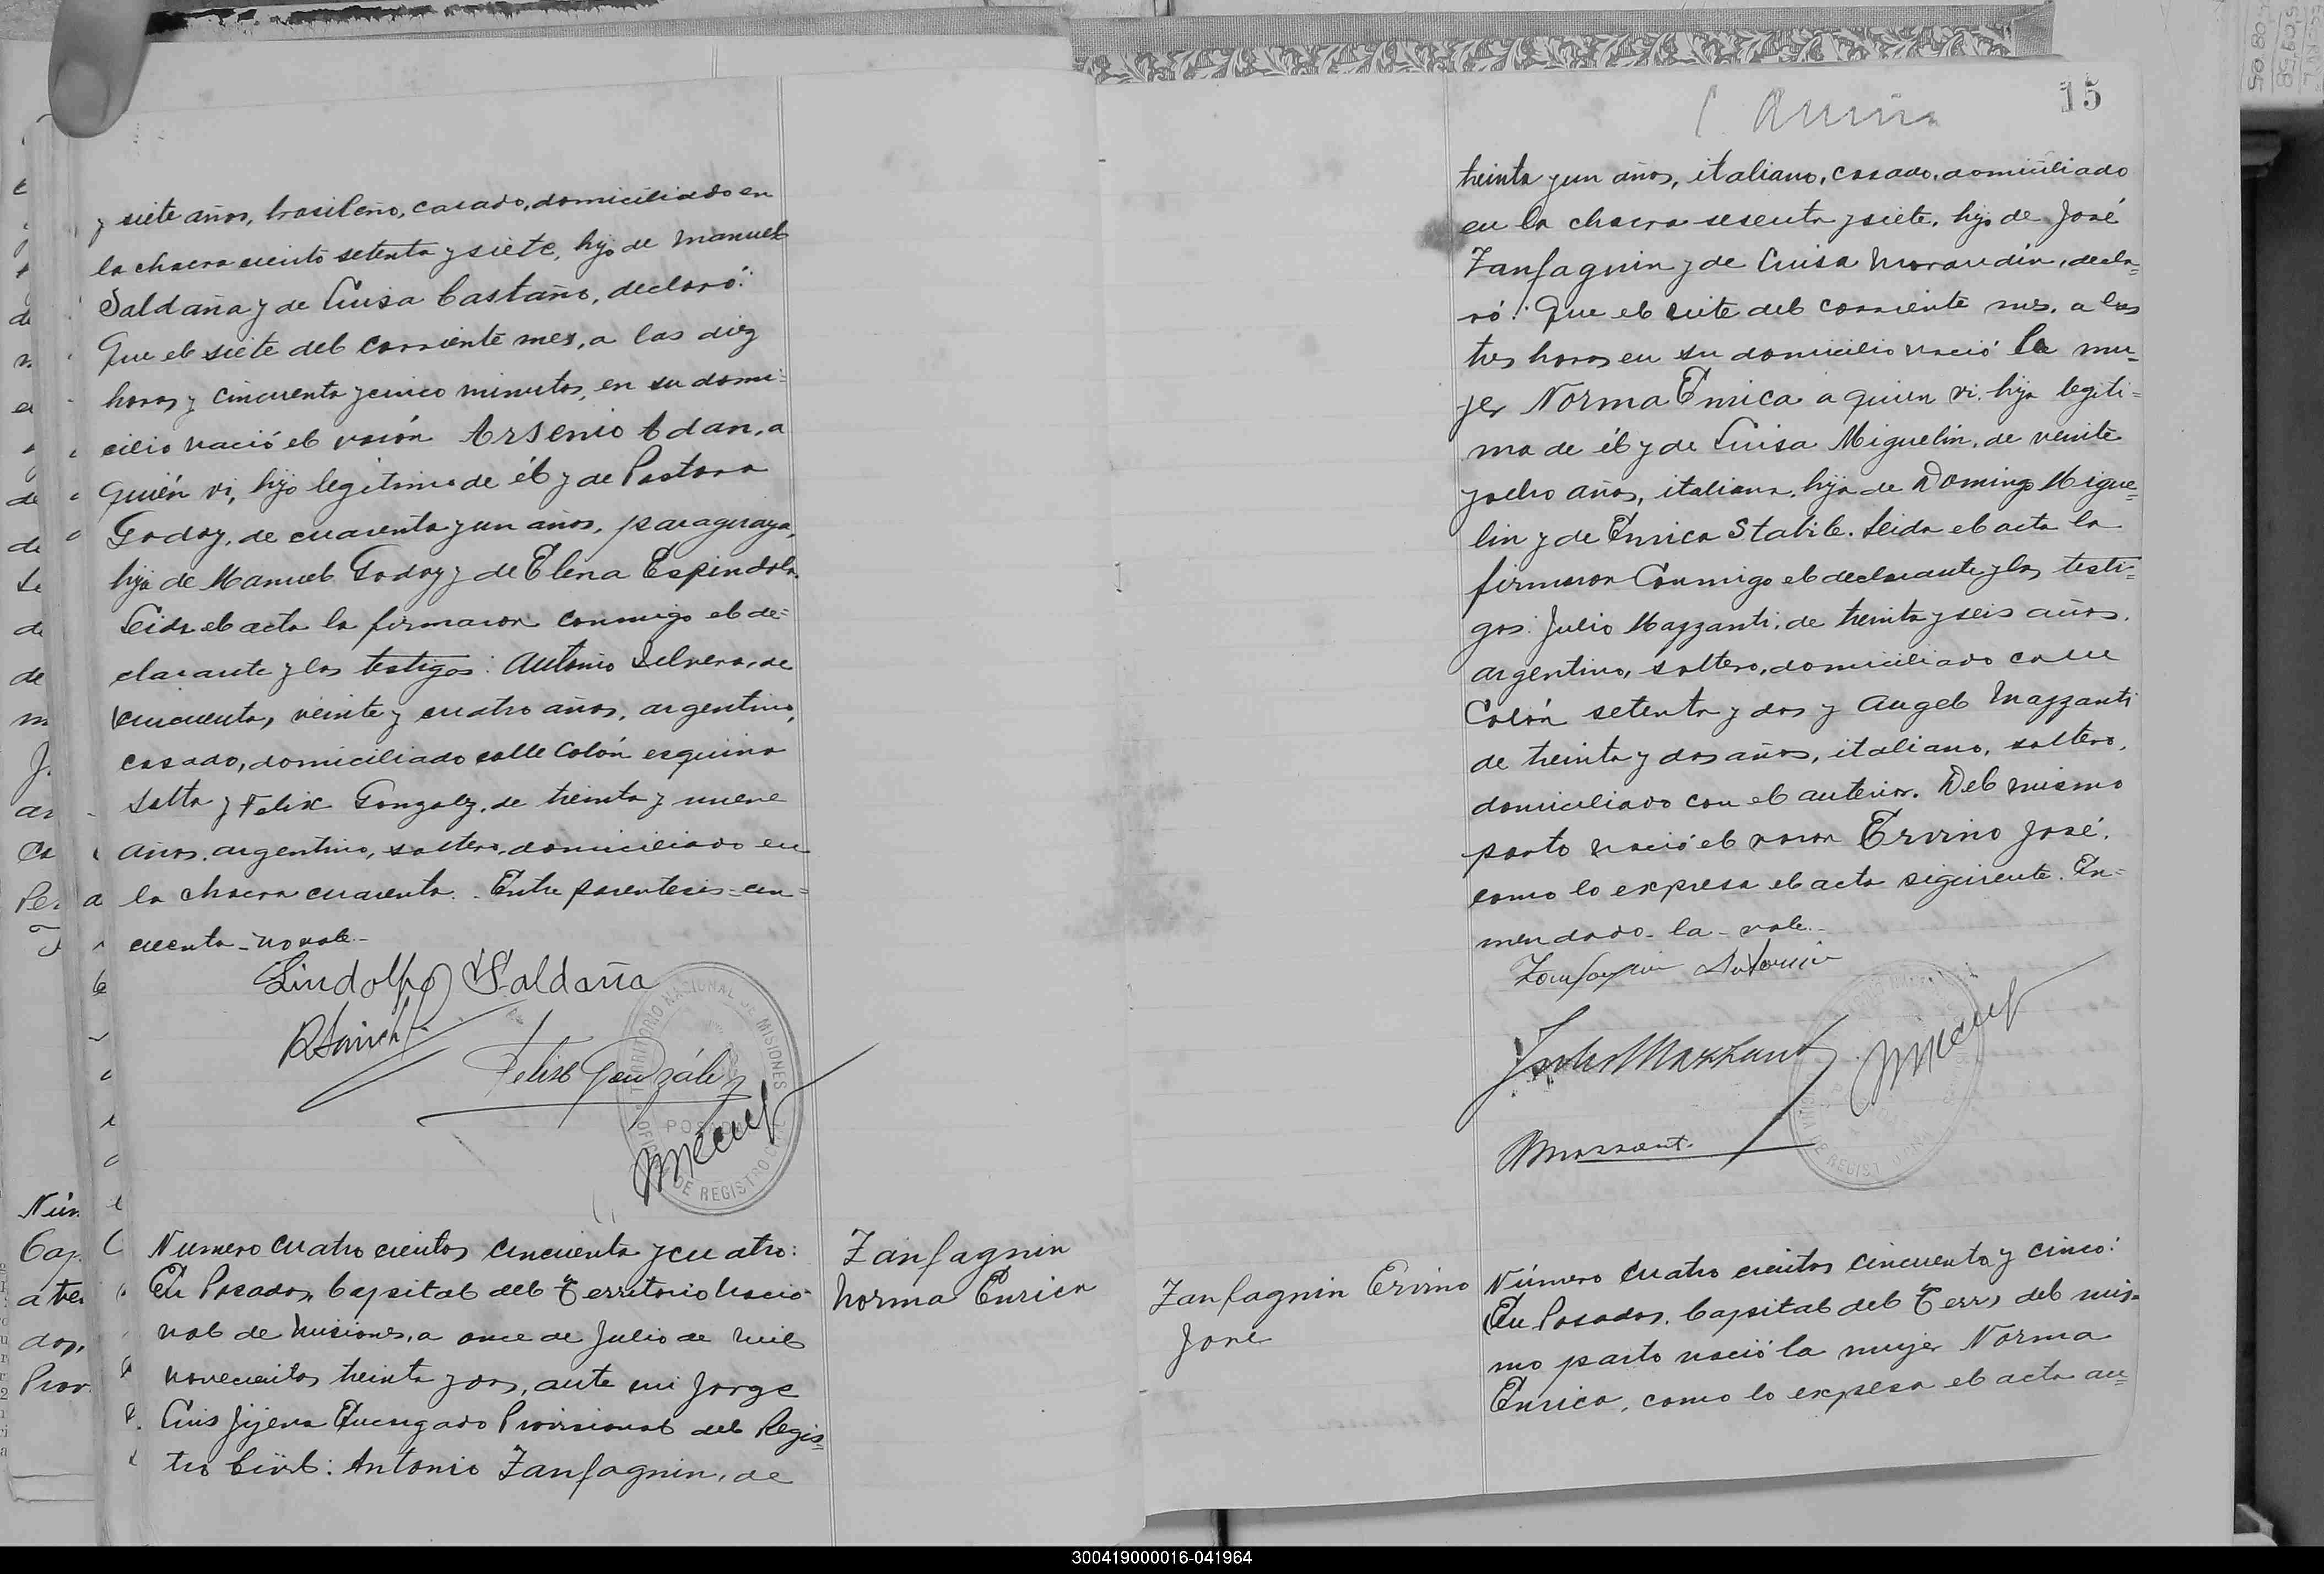 y siete años, brasileño, casado, domiciliado en
la chacra ciento setenta y siete, hijo de Manuel
Saldaña y de Luisa Castaño, declaró:
Que el siete del corriente mes, a las diez
horas y cincuenta y cinco minutos, en su domi=
cilio nació el varón Arsenio Adan, a
quién vi, hijo legitimo de él y de Pastora
Godoy, de cuarenta y un años, paraguaya,
hija de Manuel Godoy y de Elena Espindola.
Leida el acta la firmaron conmigo el de=
clarante y los testigos: Antonio Silvero, de
(cincuenta) veinte y cuatro años, argentino,
casado, domiciliado calle Colón esquina
Salta y Felix Gonzalez, de treinta y nueve
años, argentino, soltero, domiciliado en
la chacra cuarenta. Entre parentesis-cin=
cuenta-no vale-
Lindolfo Saldaña
Felix González
TERRITORIO NACIONAL DE MISIONES
POSADAS
OFICINA DE REGISTRO CIVIL
Numero cuatro cientos cincuenta y cuatro:
En Posadas, Capital del Territorio Nacio-
nal de Misiones, a once de Julio de mil
novecientos treinta y dos, ante mi Jorge
Luis Jijena Encargado Provisional del Regis=
tro Civil: Antonio Zanfagnin, de
Zanfagnin
Norma Enrica
15
treinta y un años, italiano, casado, domiciliado
en la chacra sesenta y siete, hijo de José
Zanfagnin y de Luisa Morandin, decla=
ró: Que el siete del corriente mes, a las
tres horas en su domicilio nació la mu-
jer Norma Enrica a quien vi, hija legiti=
ma de él y de Luisa Miguelin, de veinte
y ocho años, italiana, hija de Domingo Migue=
lin y de Enrica Stabile. Leida el acta la
firmaron conmigo el declarante y los testi=
gos: Julio Mazzanti, de treinta y seis años,
argentino, soltero, domiciliado calle
Colón setenta y dos y Angel Mazzanti
de treinta y dos años, italiano, soltero,
domiciliado con el anterior. Del mismo
parto nació el varon Ervino José,
como lo expresa el acta siguiente. En=
mendado-la-vale.-
Zanfagnin Antonio
Julio Mazzanti
Zanfagnin Ervino
José
Número cuatro cientos cincuenta y cinco:
En Posadas, Capital del Terr) del mis-
mo parto nació la mujer Norma
Enrica, como lo expresa el acta an=
300419000016-041964